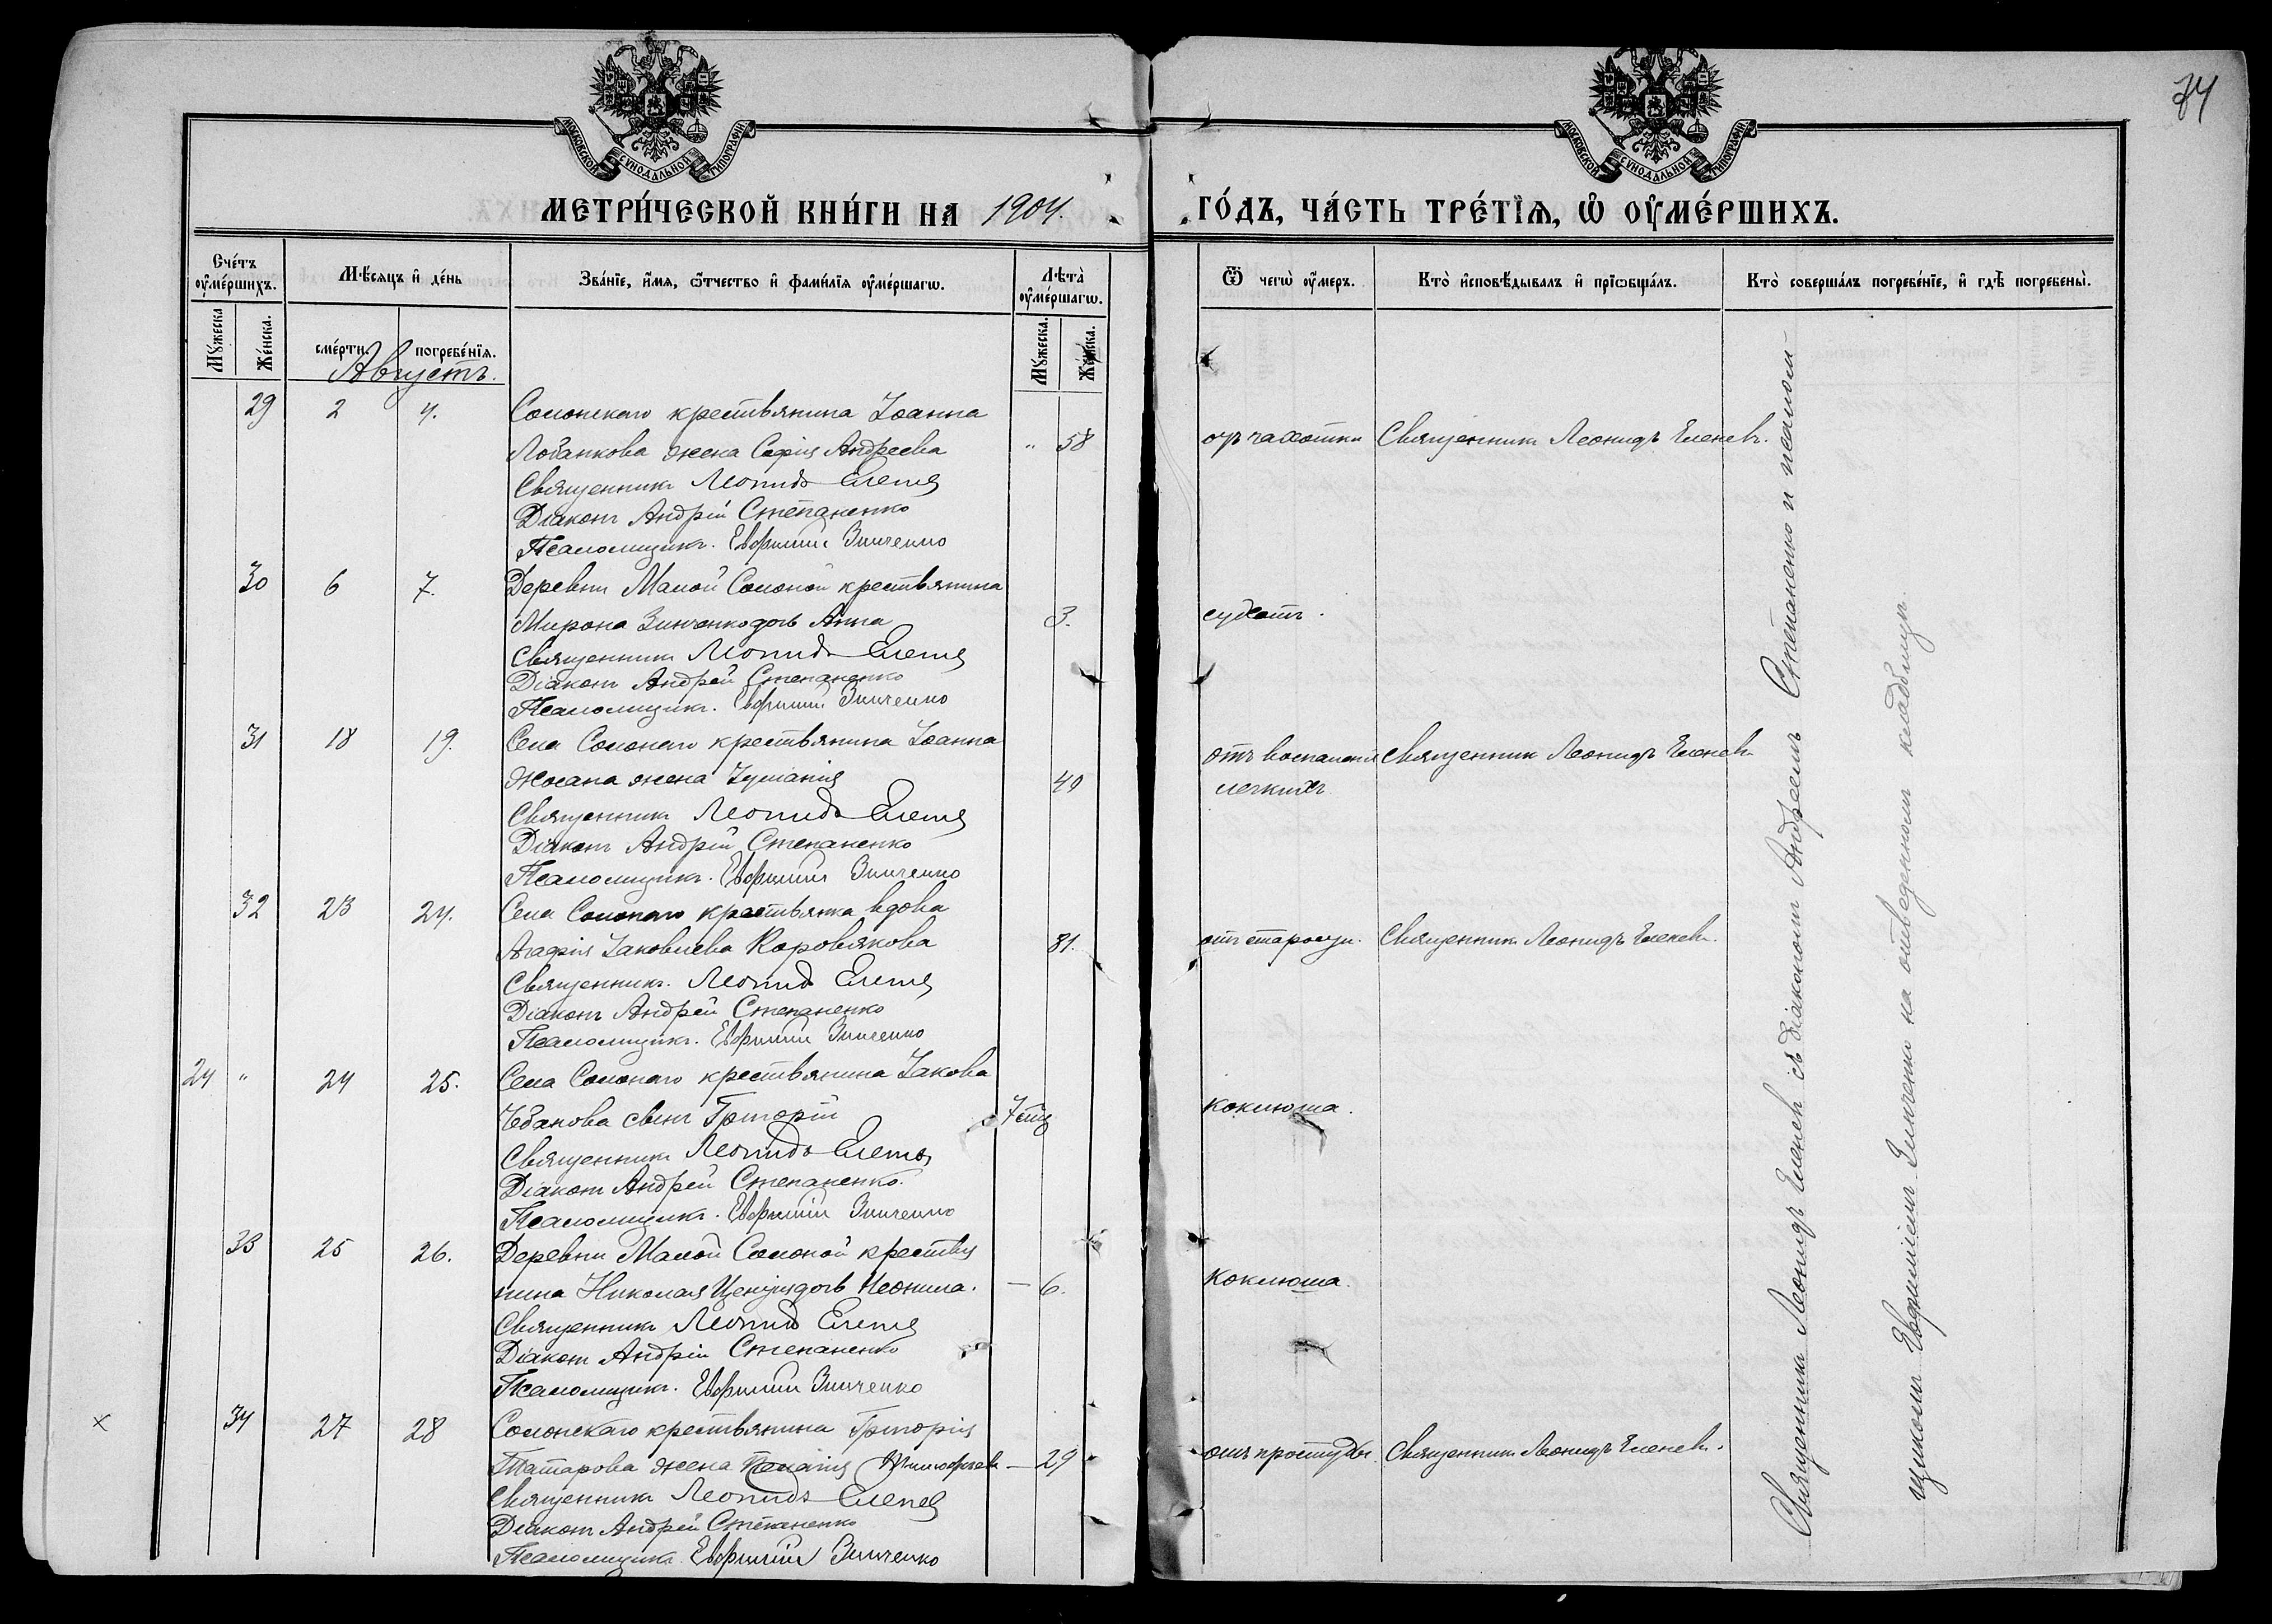 74
МОСКОВСКОЙ СУНОДАЛЬНОЙ ТИПОГРАФІИ.
МОСКОВСКОЙ СУНОДАЛЬНОЙ ТИПОГРАФІИ.
МЕТРИ́ЧЕСКОЙ КНИ́ГИ НА 1904.
ГО́ДЪ, ЧА́СТЬ ТРЕ́ТІѦ, Ѡ ОУ҆МЕ́РШИХЪ.
Сче́тъ оу҆ме́ршихъ.
Мѣ́сяцъ и҆ де́нь
Зва́нїе, и҆́мѧ, ѻ҆́тчество и҆ фами́лїѧ оу҆ме́ршагѡ.
Лѣ́та̀ оу҆ме́ршагѡ.
Ѿ чегѡ̀ оу҆́меръ.
Кто̀ и҆сповѣ́дывалъ и҆ прїѡбща́лъ.
Кто̀ соверша́лъ погребе́нїе, и҆ гдѣ̀ погребены̀.
Му́жеска
Же́нска.
сме́рти.
погребе́нїѧ.
Му́жеска.
Же́нска.
Августъ.
29 2 4. Солонскаго крестьянина Іоанна
Лобанкова жена Софія Андреева " 58 отъ чахотки Священникъ Леонидъ Еленевъ.
Священникъ Леонидъ Еленев
Діаконъ Андрій Степаненко
Псаломщикъ. Евфимій Зинченко
30 6 7. Деревни Малой Солоной крестьянина
Мирона Зинченко дочь Анна 3. сухотъ.
Священникъ Леонидъ Еленев
Діаконъ Андрей Степаненко
Псаломщикъ. Евфимій Зинченко
31 18 19. Села Солонаго крестьянина Іоанна
Жосана жена Іуліанія 40 отъ воспаленія Священникъ Леонидъ Еленевъ
легкихъ
Священникъ Леонидъ Еленев
Діаконъ Андрій Степаненко
Псаломщикъ. Евфимій Зинченко
32 23 24. Села Солонаго крестьянка вдова
Агафія Іаковлева Коровякова 81. отъ старости. Священникъ Леонидъ Еленевъ.
Священникъ. Леонидъ Еленев
Діаконъ Андрей Степаненко
Псаломщикъ. Евфимій Зинченко
24 " 24 25. Села Солонаго крестьянина Іакова
Чебанова сынъ Григорій 7 коклюша.
Священникъ Леонидъ Еленев
Діаконъ Андрей Степаненко.
Псаломщикъ. Евфимій Зинченко
33 25 26. Деревни Малой Солоной крестья
нина Николая дочь Неонила. — 6. коклюша.
Священникъ Леонидъ Еленев
Діаконъ Андрій Степаненко
Псаломщикъ. Евфимій Зинченко
× 34 27 28 Солонскаго крестьянина Григорія
Татарова жена Пелагія — 29 отъ простуды. Священникъ Леонидъ Еленевъ.
Священникъ Леонидъ Еленев
Діаконъ Андрей Степаненко
Псаломщикъ. Евфимій Зинченко
Священникъ Леонидъ Еленевъ съ діакономъ Андреемъ Степаненко и псалом
щикомъ Евфиміемъ Зинченко на отведенномъ кладбищѣ.